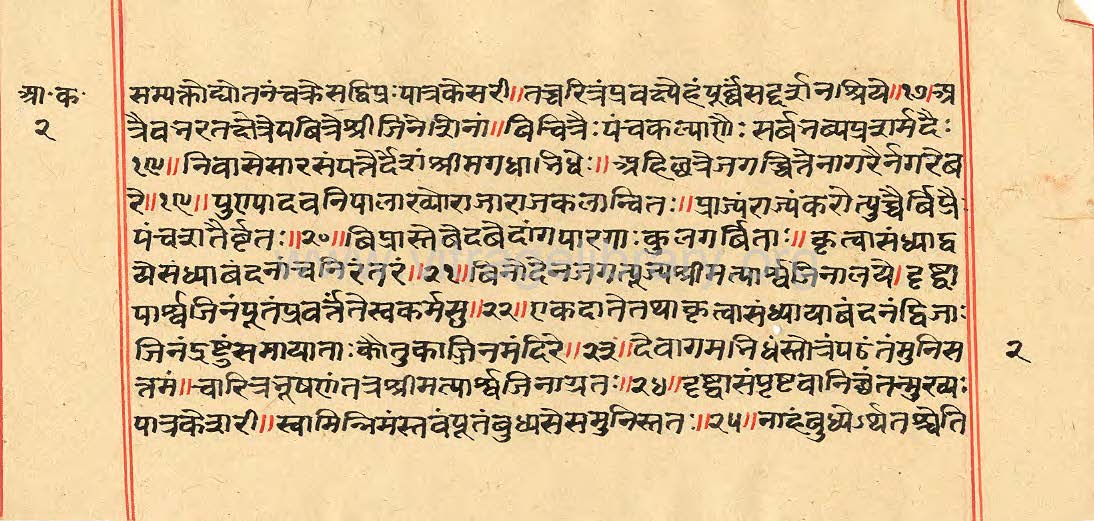 आ॰क॰
२
सम्यक्तोद्योतनंचक्रेसद्विप्रःपात्रकेसरी॥तच्चरित्रंप्रवक्ष्येहंपूर्वंसद्दर्शनश्रिये॥१७॥अ
त्रैवभरतक्षेत्रेपवित्रेश्रीजिनेशिनां॥विचित्रैःपंचकल्याणैःसर्वभव्यप्रशर्मदैः
१८॥निवासेसारसंपत्तेर्देशेश्रीमगधाभिधे॥अहिछत्रेजगच्चित्रेनागरैर्नगरेव
रे॥१९॥पुण्यादवनिपालाख्योराजाराजकलान्वितः॥प्राज्यंराज्यंकरोत्युच्चैर्विप्रैः
पंचशतैर्वृतः॥२०॥विप्रास्तेवेदवेदांगपारगाःकुलगर्विताः॥कृत्वासंध्याद्व
येसंध्यावंदनांचनिरंतरं॥२१॥विनोदेनजगत्पूज्यश्रीमत्पार्श्वजिनालये॥दृष्ट्वा
पार्श्वजिनंपूतंप्रवर्त्तंतेस्वकर्मसु॥२२॥एकदातेतथाकृत्वासंध्यायावंदनंद्विजाः
जिनंद्रष्टुंसमायाताःकौतुकाज्जिनमंदिरे॥२३॥देवागमभिधंस्तोत्रंपठंतंमुनिस
त्तमं॥चारित्रभूषणंतत्रश्रीमत्पार्श्वजिनाग्रतः॥२४॥दृष्ट्वासंपृष्टवानित्थंतन्मुख्यः
पात्रकेशरी॥स्वामिन्निमंस्तवंपूतंबुध्यसेसमुनिस्ततः॥२५॥नाहंबुध्येऽर्थतश्चेति
२
www.vitragelibrary.org